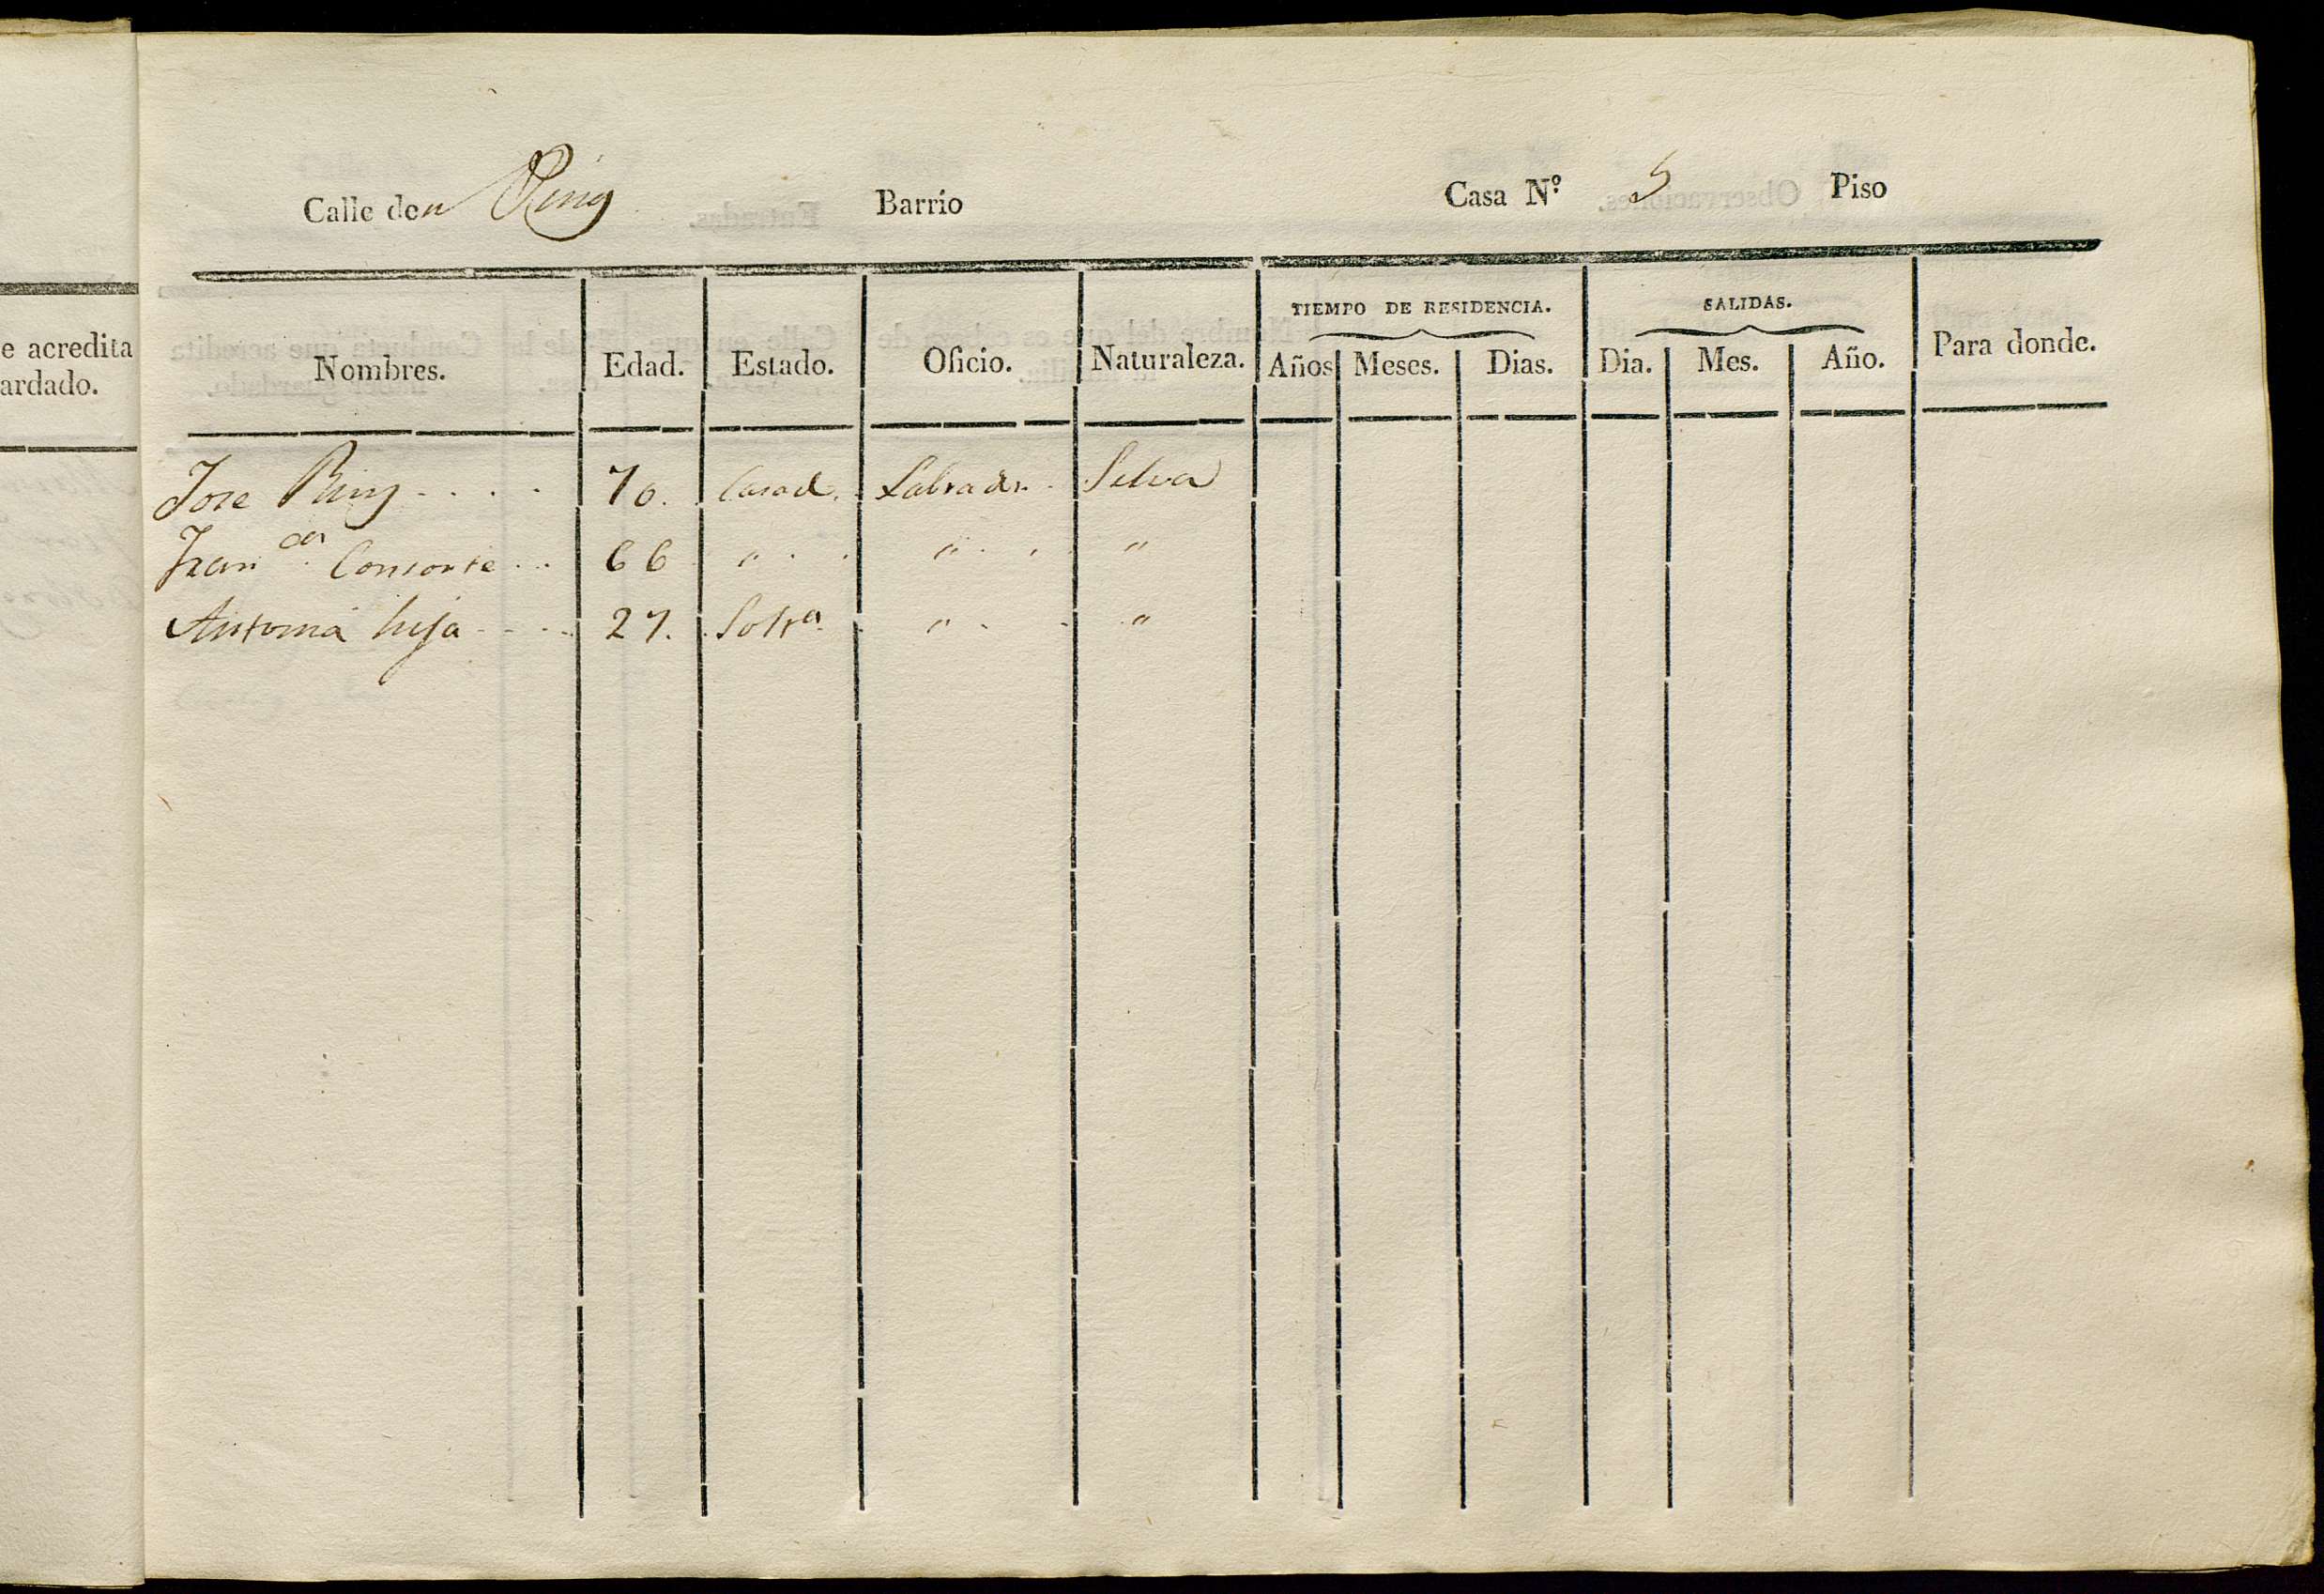 Calle den Puig Barrio Casa N.º 5 Piso
e acredita
ardado.
TIEMPO DE RESIDENCIA. SALIDAS.
Nombres. Edad. Estado. Oficio. Naturaleza. Años Meses. Dias. Dia. Mes. Año. Para donde.
Jose Puig 70. Casad. Labrador Selva
Fran.ca Consorte 66 " " "
Antonia hija 27. Solt.a " "